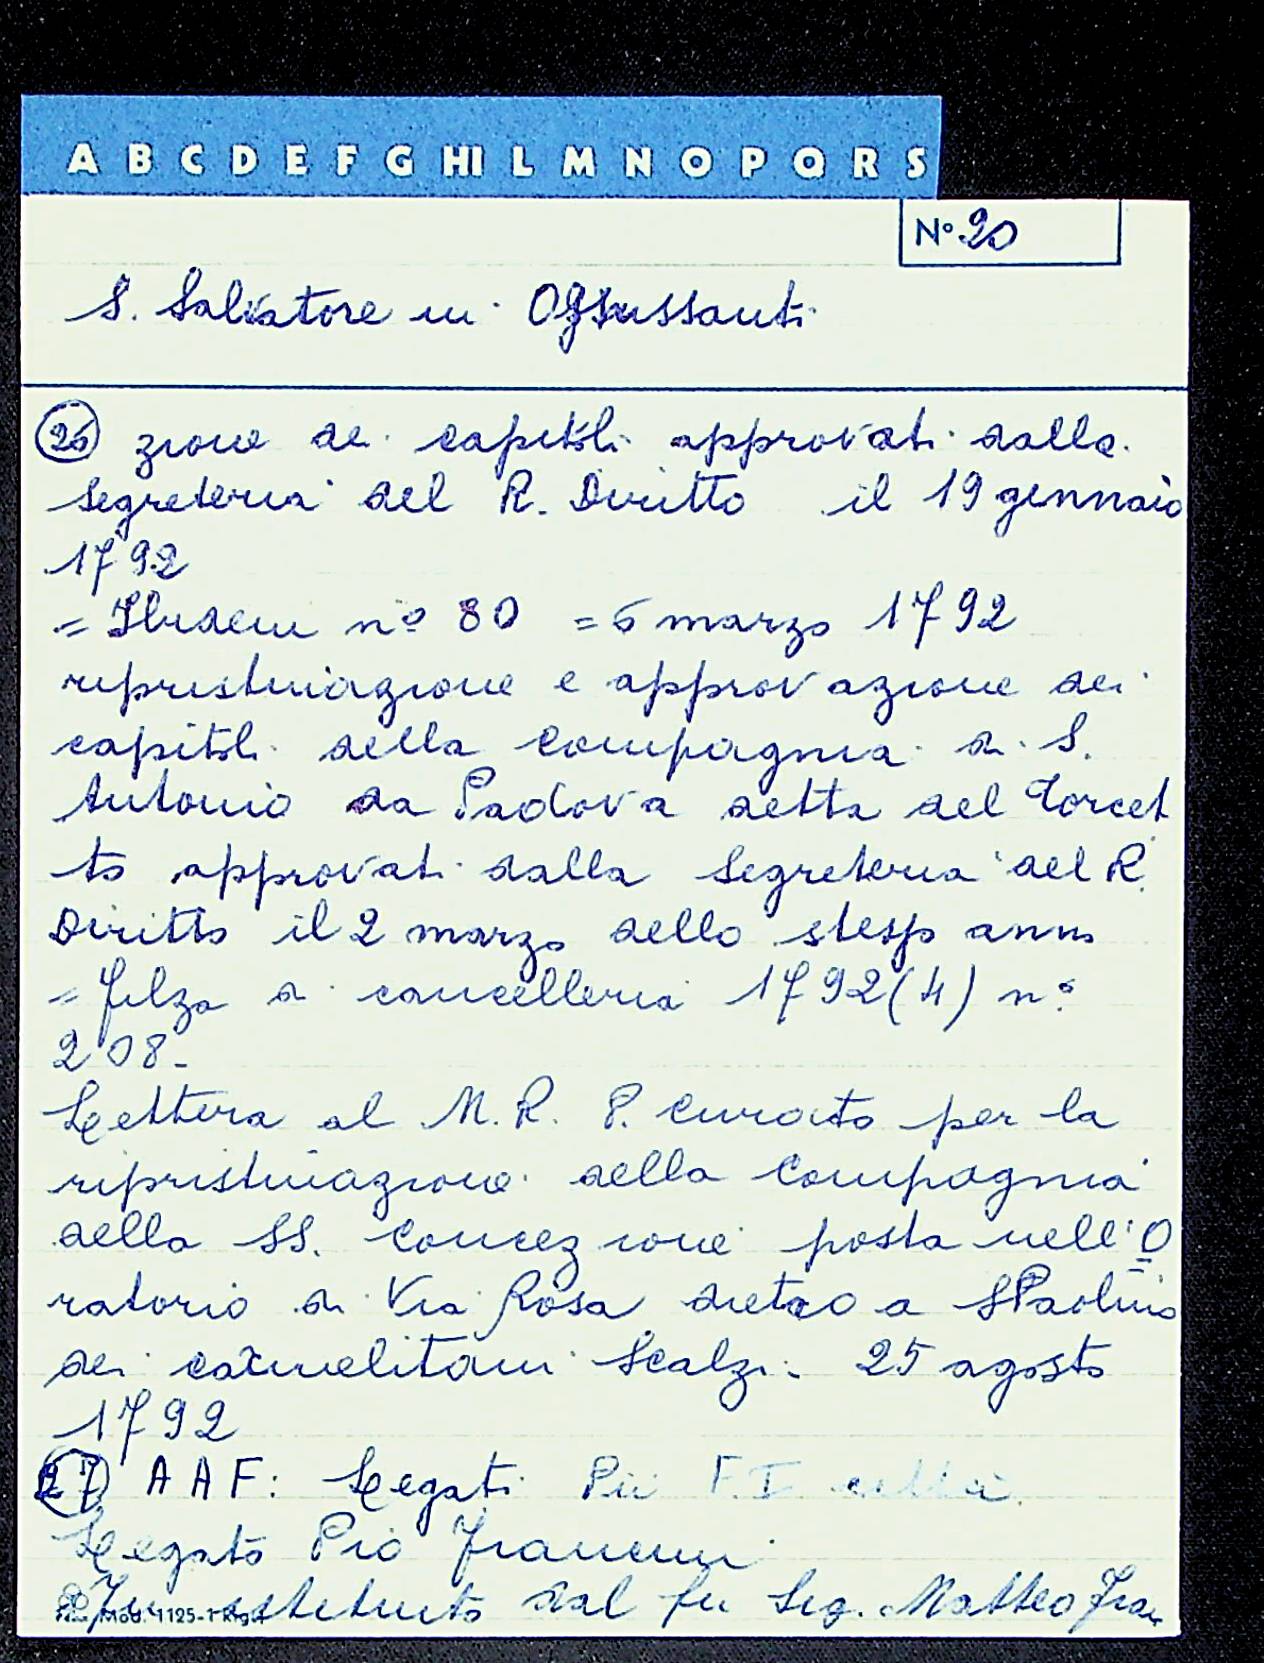 A B C D E F G HI L M N O P Q R S
N° 20
S. Salvatore in Ognissanti
26 zione dei capitoli approvati dalla
Segreteria del R. Diritto il 19 gennaio
1792
= Ibidem n° 80 = 6 marzo 1792
ripristinazione e approvazione dei
capitoli della Compagnia di S.
Antonio da Padova detta del Torcet
to approvati dalla Segreteria del R.
Diritto il 2 marzo dello stesso anno
= filza di cancelleria 1792 (4) n°
208-
Lettera al M. R. P. Curato per la
ripristinazione della Compagnia
della SS. Concezione posta nell'O
ratorio di Via Rosa dietro a S Paolino
dei carmelitani Scalzi. 25 agosto
1792
27 AAF: Legati Pii F.I
Legato Pio Francini
Fu istituito dal fu Sig. Matteo Fran
Mod. 1125-1 Rig.